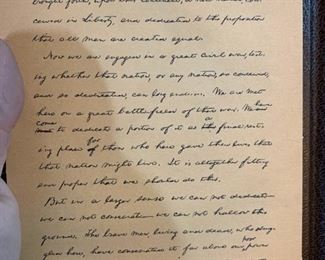 brought forth, upon this continent, a new nation, con-
ceived in Liberty, and dedicated to the proposition
that all men are created equal.
Now we are engaged in a great civil war, test-
ing whether that nation, or any nation, so conceived,
and so dedicated, can long endure. We are met
here on a great battlefield of that war. We have
come to dedicate a portion of it as a final rest-
ing place for those who here gave their lives that
that nation might live. It is altogether fitting
and proper that we should do this.
But in a larger sense we can not dedicate
we can not consecrate we can not hallow this
ground. The brave men, living and dead, who strug-
gled here, have consecrated it far above our poor